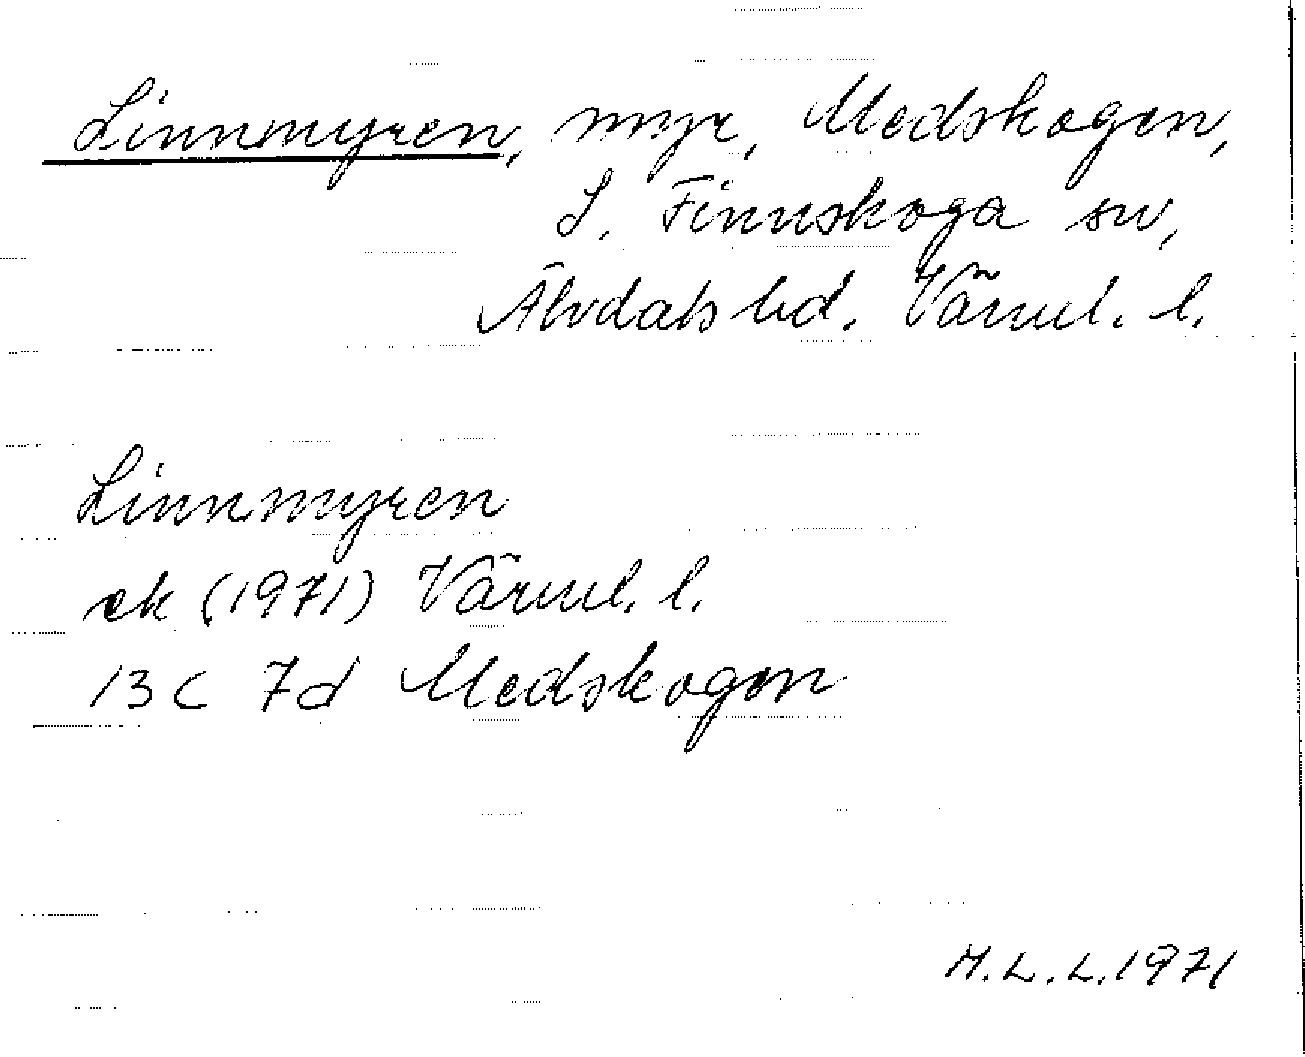 Linnmyren, myr, Medskogen,
S. Finnskoga sn,
Älvdals hd. Värml. l.
Linnmyren
ek (1971) Värml. l.
13C 7d Medskogen
M.L.L. 1971